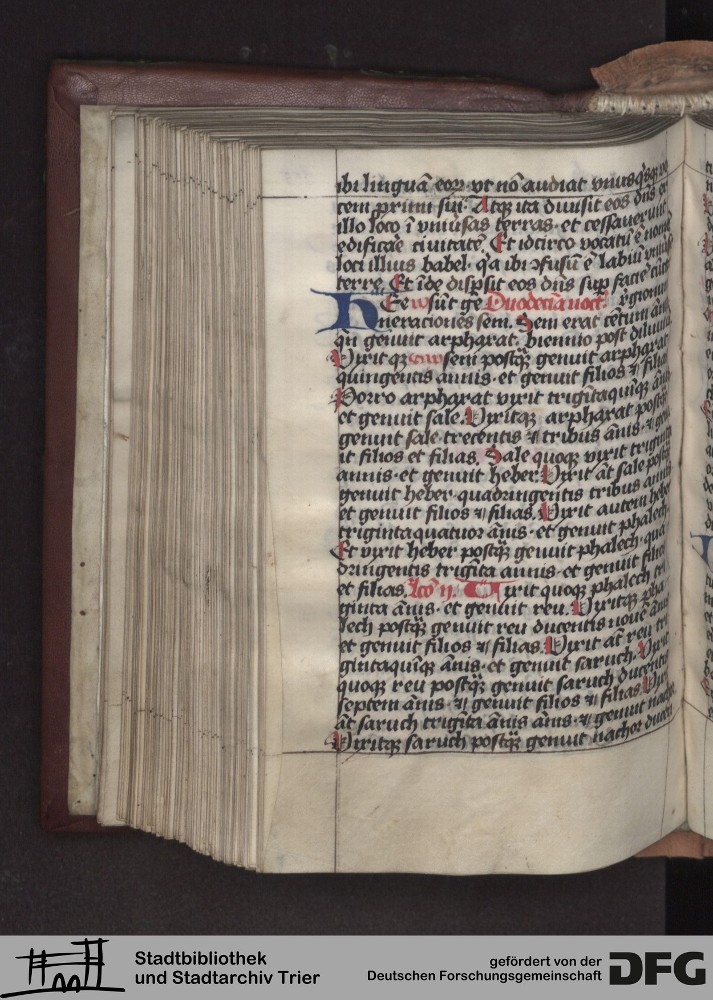 ibi linguā eoꝝ· vt nō audiat vnusqsqꝫ
cem primi sui· Atqꝫ ita diuisit eos dn̄s ex
illo loco ī vniūsas terras· et cessauerunt
edificāe ciuitatē. Et idcirco vocatū ē nomē
loci illius babel· qͥa ibi ꝯfusū ē labiū
terre. Et īde dispsit eos dn̄s sup faciē
Hee sūt ge Duodecīa
neraciones sem. Sem erat cētum
qn̄ genuit arphaxat· biennio post diluuiū
Vixit qꝫ sem postqͣꝫ genuit arphaxat
quingentis annis· et genuit filios ⁊ filias
Porro arphaxat vixit trigītaquīqꝫ
et genuit sale. Vixitqꝫ arphaxat postqͣꝫ
genuit sale· trecentis ⁊ tribus ānis· ⁊
it filios et filias. Sale quoqꝫ vixit triginta
annis· et genuit heber. Vixit āt sale postqͣꝫ
genuit heber· quadringentis tribus
et genuit filios ⁊ filias. Vixit autem heber
trigintaquatuor ānis· et genuit phalech
Et vixit heber postqͣꝫ genuit phalech· qua
dringentis trigīta annis· et genuit filios
et filias. Lcō ij. Vixit quoqꝫ phalech tri
ginta ānis· et genuit reu. Vixitqꝫ pha
lech postqͣꝫ genuit reu ducentis nouē ānis
et genuit filios ⁊ filias. Vixit āt reu tri
gintaquīqꝫ ānis· et genuit saruch. Vixit
quoqꝫ reu postqͣꝫ genuit saruch ducentis
septem ānis· ⁊ genuit filios ⁊ filias. Vixit
āt saruch trigīta ānis ānis· ⁊ genuit nachor
Vixitqꝫ saruch postqͣꝫ genuit nachor
Stadtbibliothek
und Stadtarchiv Trier
gefördert von der
Deutschen Forschungsgemeinschaft
DFG